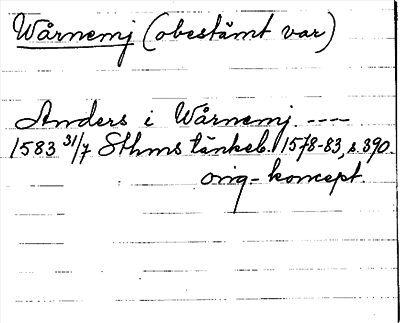 Wårnemj (obestämt var)
Anders i Wårnemj. ----
1583 31/7 Sthms tänkeb. 1578-83, s. 390.
orig-koncept.